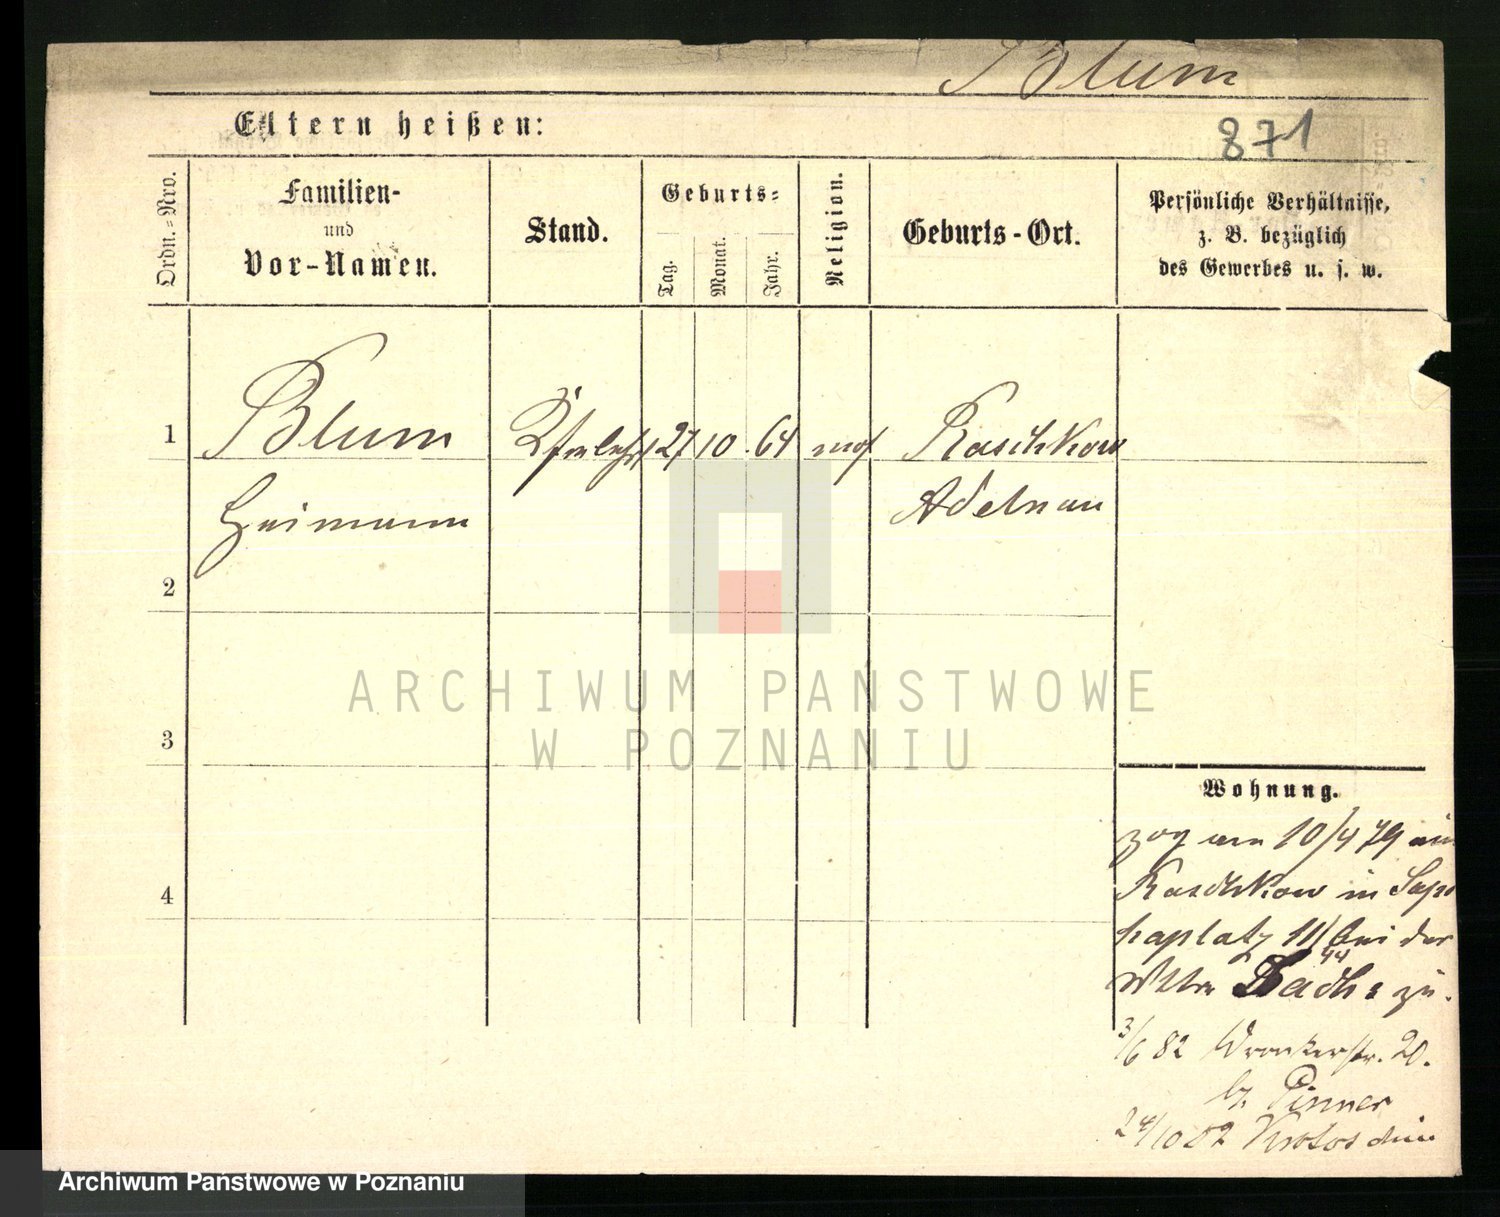 Blum
Eltern heißen:
871
Ordn.-Nro.
Familien-
und
Vor-Namen.
Stand.
Geburts-
Tag.
Monat.
Jahr.
Religion.
Geburts-Ort.
Persönliche Verhältnisse,
z. B. bezüglich
des Gewerbes u. s. w.
1
Blum
27
10
64
mos
Raschkow
Heimann
Adelnau
2
3
4
ARCHIWUM PAŃSTWOWE
W POZNANIU
Wohnung.
zog am 10/4 79 aus
Raschkow in Sapi
haplatz 11 bei der
44
Wttw zu.
3/6 82 Wronkerstr. 20.
b. Pinner
24/10 82 Krotoschin
Archiwum Państwowe w Poznaniu